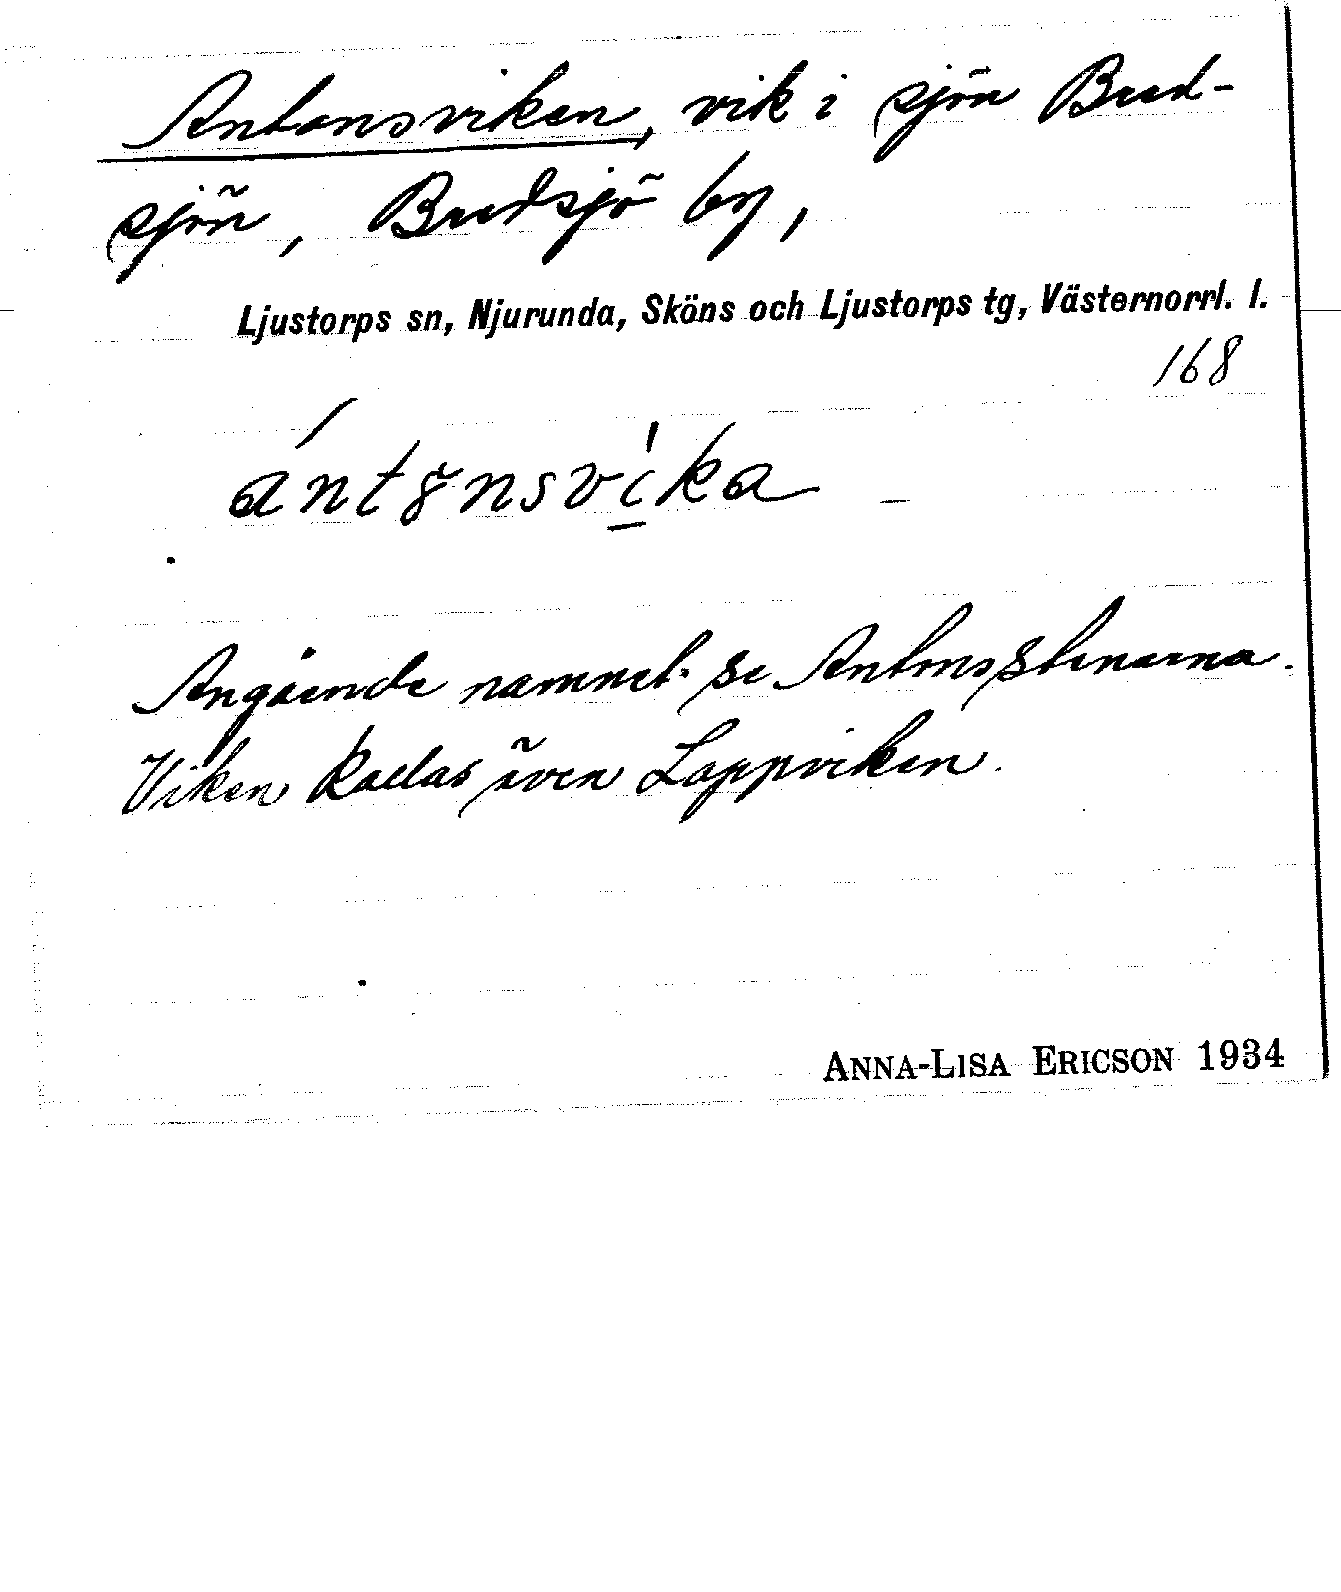 Antonsviken, vik i sjön Bred-
sjön, Bredsjö by,
Ljustorps sn, Njurunda, Sköns och Ljustorps tg, Västernorrl. l.
168
Angående namnet se Antonsstenarna.
Viken kallas även Lappviken.
ANNA-LISA ERICSON 1934